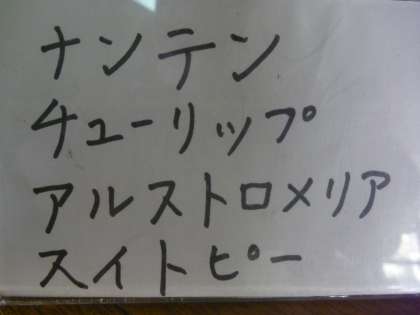 ナンテン
チューリップ
アルストロメリア
スイトピー